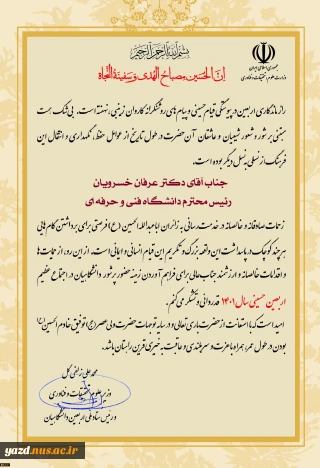 بسم الله الرحمن الرحیم
جمهوری اسلامی ایران
وزارت علوم، تحقیقات و فناوری
اِنَّ الحُسَین مِصباحُ الهُدی وَ سَفینَةُ النَّجاة
راز ماندگاری اربعین در پیوستگی قیام حسینی و پیام های روشنگرانه کاروان زینبی، نهفته است. بی شک سنت
مبتنی بر شور و شعور شیعیان و عاشقان آن حضرت در طول تاریخ از عوامل حفظ، نگهداری و انتقال این
فرهنگ از نسلی به نسل دیگر بوده است.
جناب آقای دکتر عرفان خسرویان
رئیس محترم دانشگاه فنی و حرفه ای
زحمات صادقانه و خالصانه در خدمت رسانی به زائران اباعبدالله الحسین (ع) فرصتی برای برداشتن گام هایی
هر چند کوچک در پاسداشت این واقعه بزرگ و تکریم این قیام انسانی و ایمانی است. از این رو، از حمایت ها
و اقدامات خالصانه و ارزشمند جنابعالی برای فراهم آوردن زمینه حضور پرشور دانشگاهیان در اجتماع عظیم
اربعین حسینی سال ۱۴۰۱ قدردانی و تشکر می کنم.
امید است که با استعانت از حضرت باری تعالی و در سایه توجهات حضرت ولی عصر (عج) توفیق خادم الحسین (ع)
بودن در طول عمر، همراه با عزت و سربلندی و عاقبت به خیری قرین راهتان باشد.
محمد علی زلفی گل
وزیر علوم، تحقیقات و فناوری
و رئیس ستاد ملی اربعین دانشگاهیان
yazd.nus.ac.ir